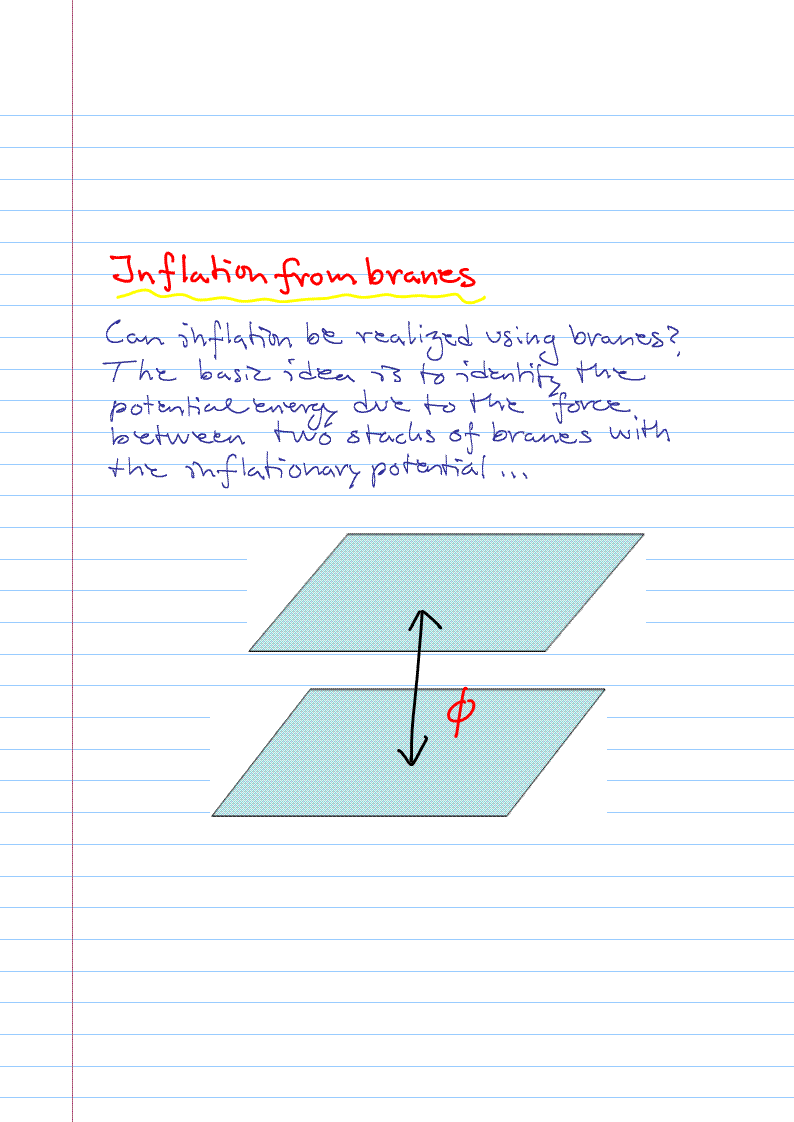 Inflation from branes
Can inflation be realized using branes?
The basic idea is to identify the
potential energy due to the force
between two stacks of branes with
the inflationary potential ...
ϕ